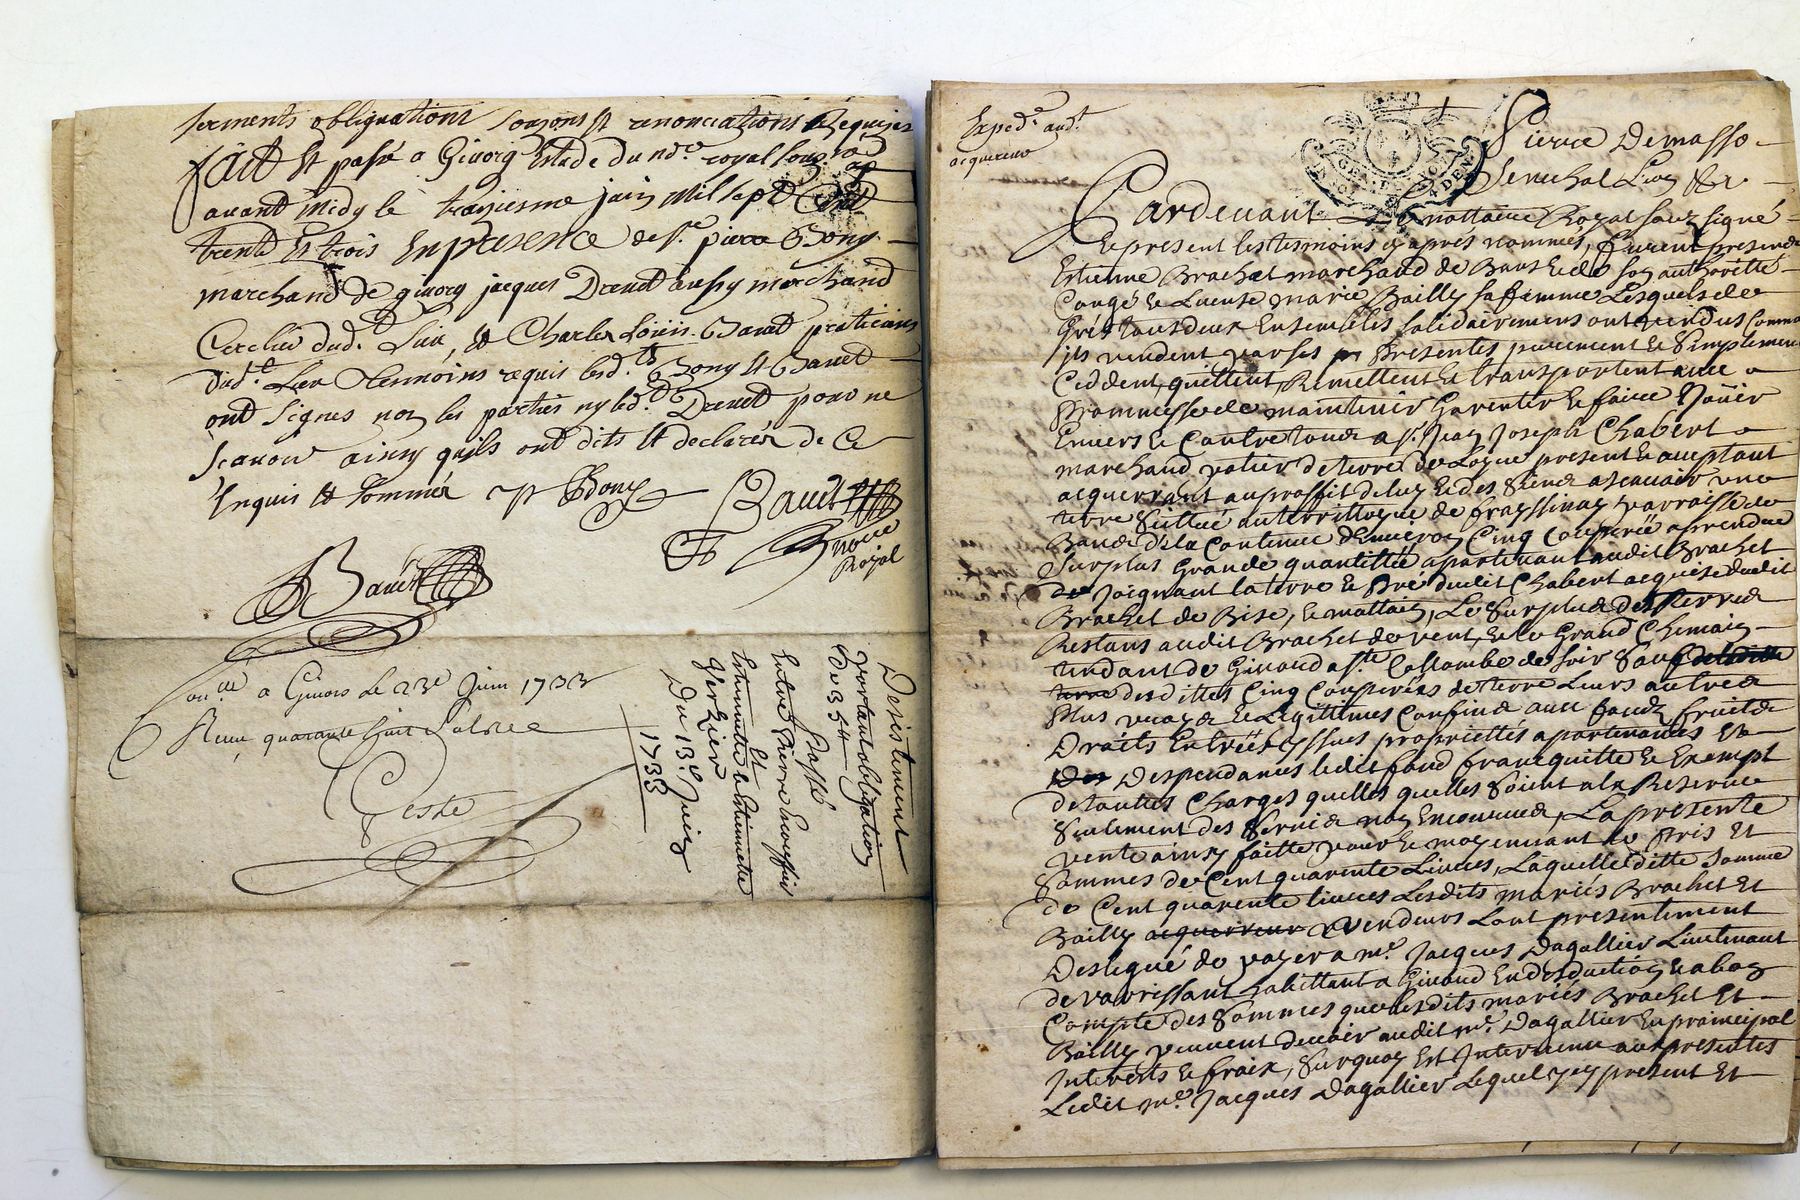 serments obligations soumons et renonciations Requises
fait et passé a Givors Estude du nore royal souz.
avant midy le treiziesme juin mil sept Cent
trente et trois En presence de sr. pierre Bony
marchand de givors jacques Drevet aussy marchand
dud. Lieu, et Charles Loüis Bavet praticiens
dud. Lieu tesmoins requis lesd.ts Bony et Bavet
ont signés non les parties ny led.t Drevet pour ne
scavoir ainsy quils ont dits et declarés de Ce
Enquis et sommés P Bony Bavet
nore
Royal
Bavet
a Givors Le 23e Juin 1733
Receu quarante huit sols
Desistement
portant obligation
De 354
passé
Entre Pierre
Et
Estiennette
Verzier
Du 13e Juin
1733
Exped.e aud.t
acquereur
GEN DE LYON
4 DEN
Pierre Demasso
Senechal Lion &
Pardevant Le nottaire Royal souz signé
Et present les tesmoins cy aprés nommés, furent presents
Estienne Brachet marchand de Bans et de son authorité
Congé et License marie Bailly sa femme Lesquels de
Grés tous deux Ensembles solidairement ont vendus comme
ils vendent par ses presentes purement et simplement
Ceddent, quittent, Remettent et transportent avec
Prommesse de maintenir Garentir et faire Joüir
Envers et Contre tous a sr. Jean Joseph Chabert
marchand potier de terre de present et acceptant
acquerrant au proffit de luy et des siens a scavoir une
terre scittué au territtoire de frayssinay parroisse de
Bans de la Contenue d'environ Cinq Couperée a prendre
sur plus Grande quantittée apartenant audit Brachet
de Joignant la terre et Pré dudit Chabert acquise dudit
Brachet de Bise, et mattain, Le surplus des terres
Restans audit Brachet de vent, et le Grand Chemain
tendant de Givord a ste Collombe de soir sauf de ladittte
terre desdittes Cinq Couperées de terre Leurs autres
Plus vrays et Legitimes Confins avec fonds fruits
Droits Entrées yssues proprietés apartenances Et
Des Despendances ledit fond franc quitte et Exempt
de toutes Charges quelles quelles soient a la Reserve
seulement des servis non Encourrus, La presente
vente ainsy faitte pour et moyennant le Pris Et
sommes de Cent quarente Livres, Laquelle ditte somme
de Cent quarente livres Lesdits mariés Brachet Et
Bailly acquerreur vendeurs Lont presentement
Deslegué de payer a me. Jacques Dagallier Lieutenant
habittant a Givord En desduction et abon
Compte des sommes que lesdits mariés Brachet Et
Bailly peuvent devoir audit me. Dagallier En principal
Interests et fraix, surquoy Est Intervenu aux presentes
Ledit me. Jacques Dagallier Lequel icy present Et